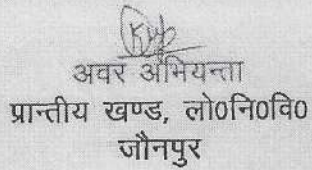 अवर अभियन्ता
प्रान्तीय खण्ड, लो0नि0वि0
जौनपुर